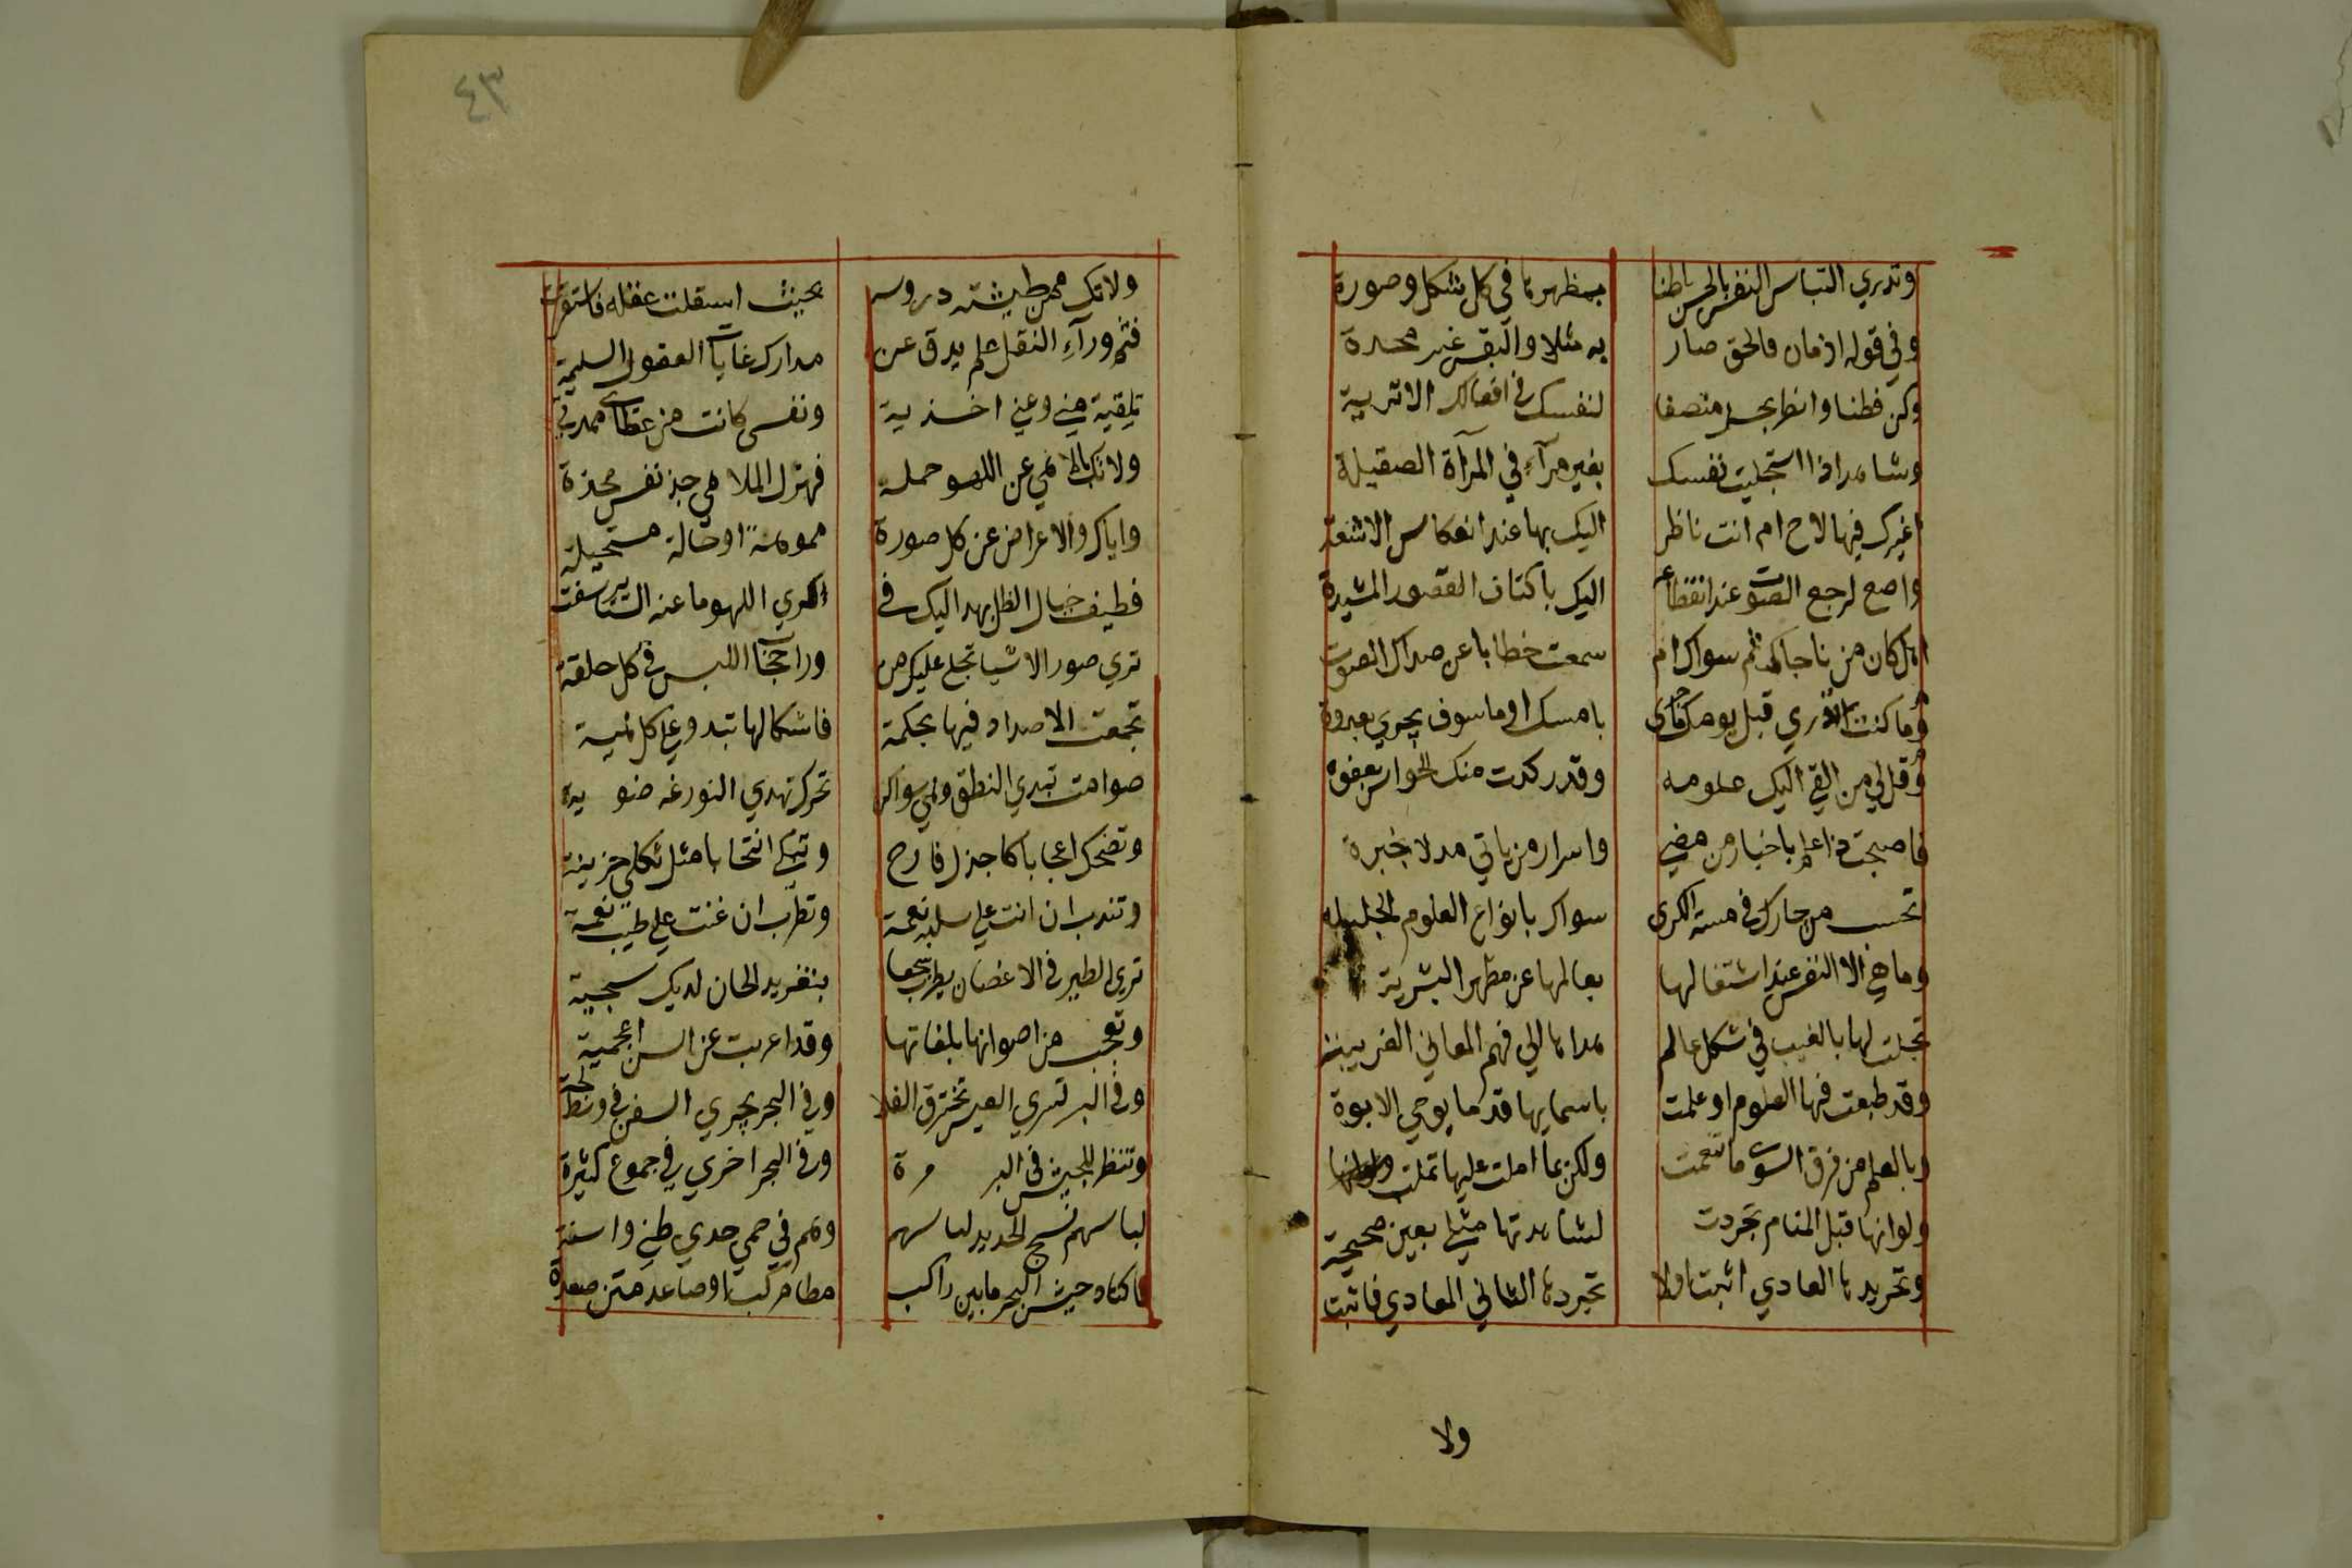 وتدري التباس النفس بالحس باطنا بمظهرها في كل شكل وصورة
وفي قوله اذ مان فالحق صار به مثلا والنفس غير محدة
وكن فطنا وانظر بحس منصفا لنفسك في افعالك الاثرية
وشاهد اذا استجليت نفسك بغير مرآء في المرآة الصقيلة
اغيرك فيها لاح ام انت ناظر اليك بها عند انعكاس الاشعة
واصغ لرجع الصوت عند انقطاعه اليك باكتاف القصور المشيدة
اهل كان من ناجاك ثم سواك ام سمعت خطابا عن صداك المصوت
وما كنت تدري قبل يومك ما جرى بامسك او ما سوف يجري بغدوة
وقل لي من القي اليك علومه وقد ركدت منك الحواس بغفوة
فاصبحت ذا علم باخبار من مضي واسرار من ياتي مدلا بخبرة
تحسب من جارك في سنة الكرى سواك بانواع العلوم الجليله
وما هي الا النفس عند اشتغالها بعالمها عن مظهر البشرية
تجلت لها بالغيب في شكل عالم هداها الي فهم المعاني الغريبة
وقد طبعت فيها العلوم او علمت باسمايها قدما بوحي الابوة
وبالعلم من فرق السوى ما تنعمت ولكن بما املت عليها تملت
ولو انها قبل المنام تجردت لشاهدتها مثلي بعين صحيحة
وتجريدها العادي اثبت اولا تجردها الثاني المعادي فاثبت
ولا
٤٣
ولا تك ممن طيشته دروسه بحيث استقلت عقله فاستقرت
فثم ورآء النقل علم يدق عن مدارك غايات العقول السليمة
تلقيته مني وعني اخذيه ونفسي كانت من عطاي ممدتي
ولا تك باللاهي عن اللهو جملة فهزل الملاهي جد نفس مجدة
واياك والاعراض عن كل صورة مموهة او حالة مستحيلة
فطيف خيال الظل يهدي اليك في كري اللهو ما عنه الستاير شفت
تري صور الاشيا تجلي عليك من ورا حجاب اللبس في كل خلعة
تجمعت الاضداد فيها بحكمة فاشكالها تبدو علي كل هيية
صوامت تبدي النطق وهي سواكن تحرك تهدي النور غير ضويية
وتضحك اعجابا كاجذل فارح وتبكي انتحابا مثل ثكلى حزينة
وتندب ان انت علي سلب نعمة وتطرب ان غنت علي طيب نغمة
تري الطير في الاغصان يطرب سجعها بتغريد الحان لديك سجية
وتعجب من اصواتها بلغاتها وقد اعربت عن السن اعجمية
وفي البر تسري العيس تخترق الفلا وفي البحر يجري السفن في وسط لجة
وتنظر للجيش في البر مرة وفي البحر اخري في جموع كثيرة
لباسهم نسج الحديد لباسهم وهم في حمي حدي ظبي واسنة
فاكناد جيش البحر مابين راكب مطا مركب او صاعد متن صعدة